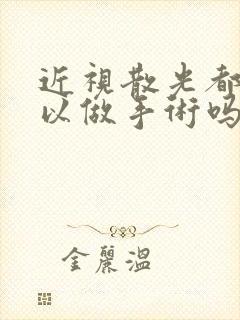 近視散光都
以做手術吗
金麗温